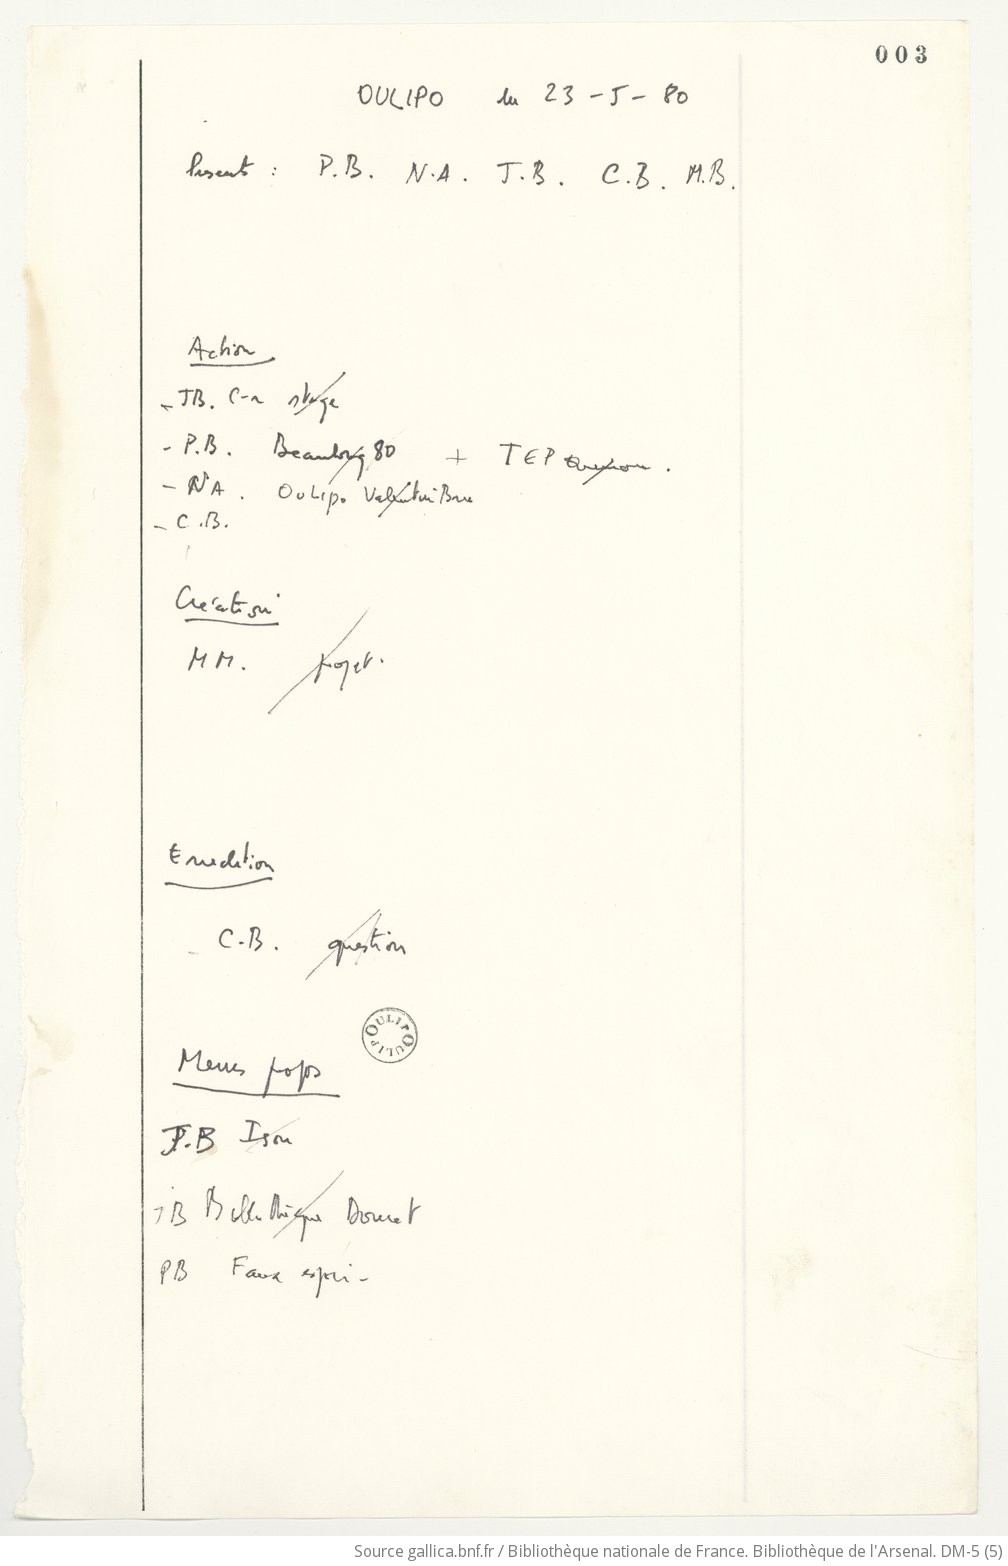 003
OULIPO du 23-5-80
Présents : P.B. N.A. J.B. C.B. M.B.
Action
- JB. C-r stage
- P.B. Beaubourg 80 + TEP
- NA. OuLipo Valentin Bru
- C.B.
Création
MM. projet.
Erudition
- C.B. question
OULIPO OULIPO
Menus propos
P.B
JB Bibliothèque Doucet
PB Faux espri-
Source gallica.bnf.fr / Bibliothèque nationale de France. Bibliothèque de l'Arsenal. DM-5 (5)